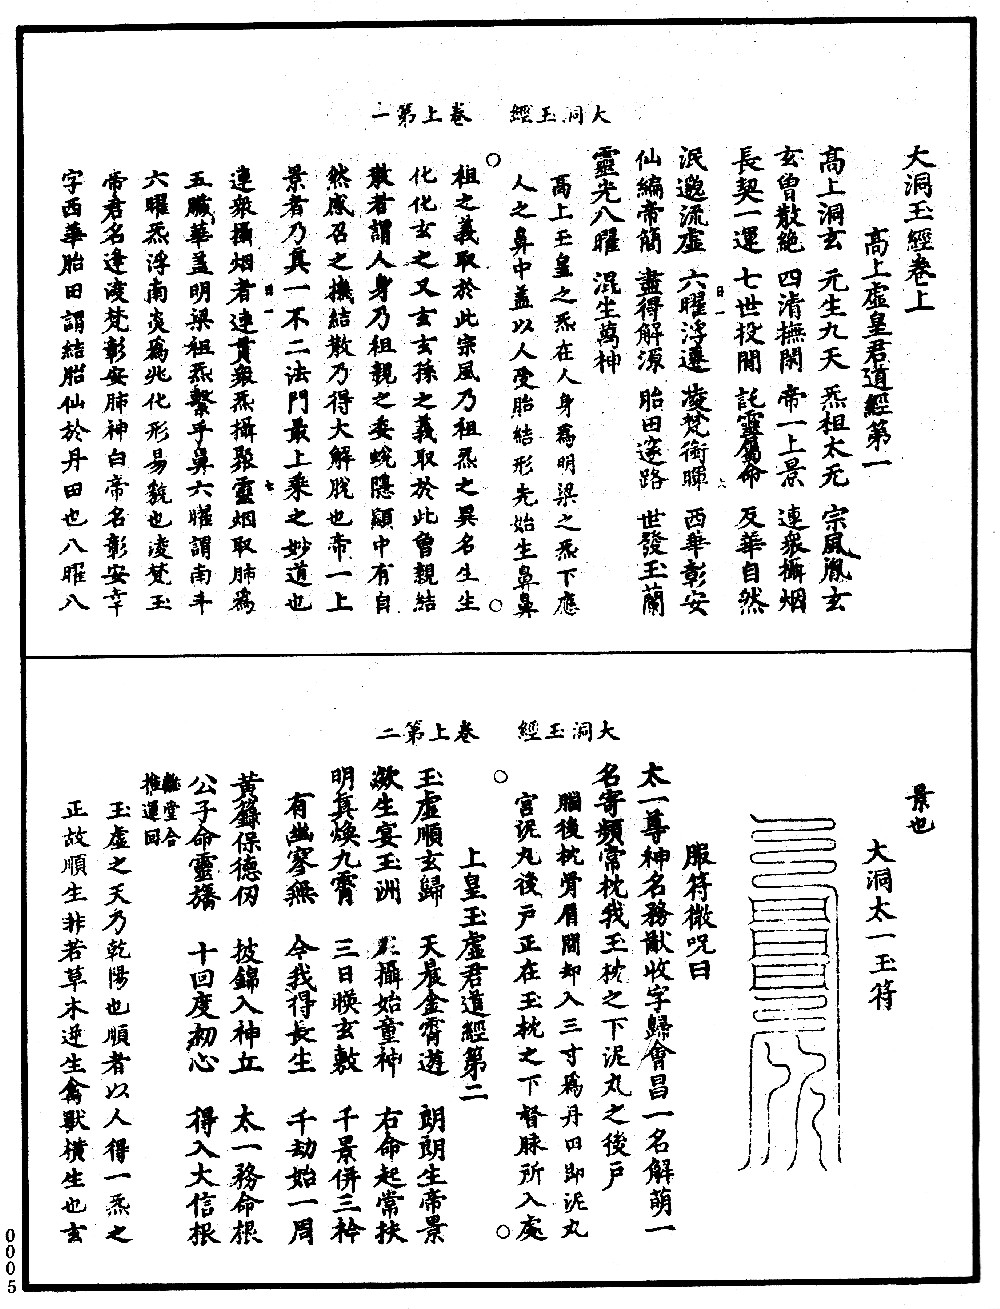 大洞玉經　卷上第一
大洞玉經卷上
高上虛皇君道經第一
高上洞玄　元生九天　炁祖太无　宗風胤玄
玄曾散絶　四清撫閑　帝一上景　連衆攝烟
長契一運　七世投閒　託靈屬命　反華自然
泯邈流虛　六曜浮遷　淩梵銜暉　西華彰安
仙編帝簡　盡得解源　胎田邃路　世發玉蘭
靈光八曜　混生萬神
高上玉皇之炁在人身爲明梁之炁下應
人之鼻中蓋以人受胎結形先始生鼻鼻
祖之義取於此宗風乃祖炁之異名生生
化化玄之又玄玄孫之義取於此曾親結
散者謂人身乃祖親之委蛻隱顯中有自
然感召之機結散乃得大解脫也帝一上
景者乃真一不二法門最上乘之妙道也
連衆攝烟者連貫衆炁攝聚靈烟取肺爲
五臟華蓋明梁祖炁繫乎鼻六曜謂南斗
六曜炁浮南炎爲兆化形易貌也淩梵玉
帝君名逢淩梵彰安肺神白帝名彰安卒
字西華胎田謂結胎仙於丹田也八曜八
大洞玉經　卷上第二
景也
大洞太一玉符
服符微呪曰
太一尊神名務猷收字歸會昌一名解萌一
名寄頻常枕我玉枕之下泥丸之後戶
腦後枕骨眉間却入三寸爲丹田即泥丸
宮泥丸後戶正在玉枕之下督脉所入處
上皇玉虛君道經第二
玉虛順玄歸　天晨金霄遊　朗朗生帝景
漱生宴玉洲　攝始童神　右命起常扶
明真煥九霄　三日暎玄敷　千景併三衿
有幽寥無　令我得長生　千劫始一周
黃籙保德仞　披錦入神丘　太一務命根
公子命靈旛　十回度初心　得入大信根
堂合
推運回
玉虛之天乃乾陽也順者以人得一炁之
正故順生非若草木逆生禽獸橫生也玄
0005